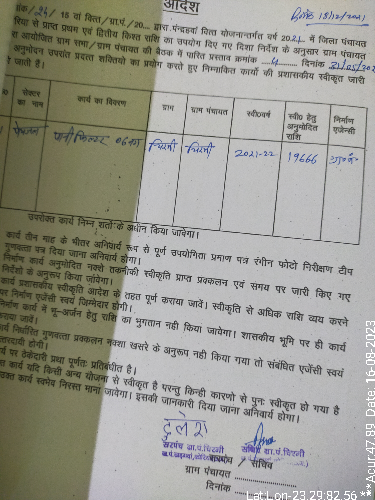 आदेश
दिनांक 18/12/2021
/ 15 वां वित्त / ग्रा.पं. / 20... द्वारा पंन्द्रहवां वित्त योजनान्तर्गत वर्ष 2021 में जिला पंचायत
से प्राप्त प्रथम एवं द्वितिय किश्त राशि का उपयोग दिए गए दिशा निर्देश के अनुसार ग्राम पंचायत
आयोजित ग्राम सभा/ग्राम पंचायत की बैठक में पारित प्रस्ताव क्रमांक ...4... दिनांक
अनुमोदन उपरांत प्रदत्त शक्तियो का प्रयोग करते हुए निम्नांकित कार्यो की प्रशासकीय स्वीकृत जारी
जाती है।
सेक्टर का नाम कार्य का विवरण ग्राम ग्राम पंचायत स्वी0वर्ष स्वी0 हेतु अनुमोदित राशि निर्माण एजेन्सी
पेयजल पानी फिल्टर 06 नग चिरमी चिरमी 2021-22 19666 ग्रा0पं0
उपरोक्त कार्य निम्न शर्तो के अधीन किया जावेगा।
कार्य तीन माह के भीतर अनिवार्य रूप से पूर्ण उपयोगिता प्रमाण पत्र रंगीन फोटो निरीक्षण टीप
गुणवत्ता पत्र दिया जाना अनिवार्य होगा।
निर्माण कार्य अनुमोदित नक्शे तकनीकी स्वीकृति प्राप्त प्रक्कलन एवं समय पर जारी किए गए
निर्देशो के अनुरूप किया जावेगा।
कार्य प्रशासकीय स्वीकृति आदेश के तहत पूर्ण कराया जावें। स्वीकृति से अधिक राशि व्यय करने
पर निर्माण एजेंसी स्वयं जिम्मेदार होगी।
निर्माण कार्य में भू–अर्जन हेतु राशि का भुगतान नही किया जावेगा। शासकीय भूमि पर ही कार्य
कराया जावें।
कार्य निर्धारित गुणवत्ता प्रक्कलन नक्शा खसरे के अनुरूप नही किया गया तो संबंधित एजेंसी स्वयं
होगी।
कार्य पर ठेकेदारी प्रथा पूर्णतः प्रतिबंधीत है।
कार्य यदि किसी अन्य योजना से स्वीकृत है परन्तु किन्ही कारणो से पुनः स्वीकृत हो गया है
उक्त कार्य स्वमेव निरस्त माना जावेगा। इसकी जानकारी दिया जाना अनिवार्य होगा।
सरपंच ग्रा.पं.चिरमी सचिव ग्रा.पं.चिरमी
सरपंच / सचिव
ग्राम पंचायत ..................
दिनांक ..................
**Acur:47.89 Date,16-08-2023
Lat Lon-23.29,82.56 **